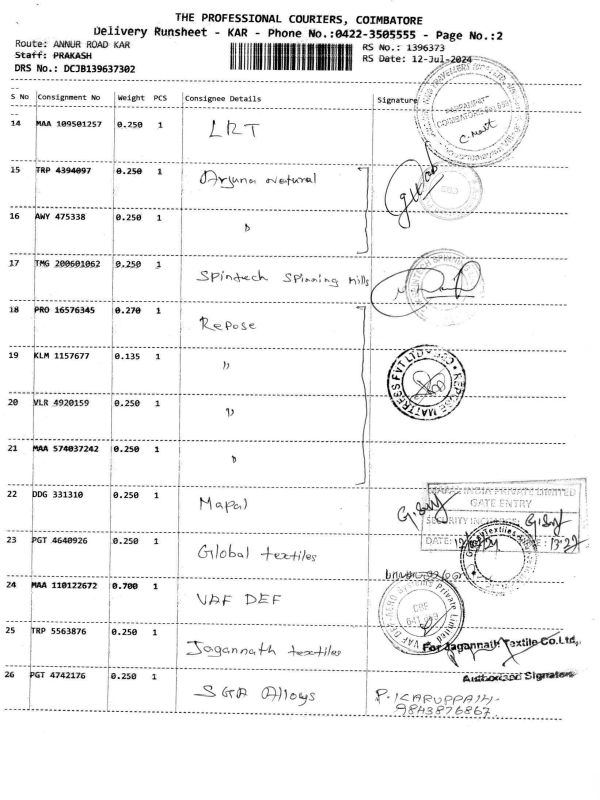 THE PROFESSIONAL COURIERS, COIMBATORE
Delivery Runsheet - KAR - Phone No.:0422-3505555 - Page No.:2
Route: ANNUR ROAD KAR
RS No.: 1396373
Staff: PRAKASH
RS Date: 12-Jul-2024
DRS No.: DCJB139637302
S No Consignment No Weight PCS Consignee Details Signature
14 MAA 109501257 0.250 1 LRT
15 TRP 4394097 0.250 1 Arjuna natural
16 AWY 475338 0.250 1 "
17 TMG 200601062 0.250 1 Spintech Spinning Mills
18 PRO 16576345 0.270 1 Repose
19 KLM 1157677 0.135 1 "
REPOSE MATTRESS PVT LTD
20 VLR 4920159 0.250 1 "
21 MAA 574037242 0.250 1 "
INDIA PRIVATE LIMITED
GATE ENTRY
22 DDG 331310 0.250 1 Mapal
SECURITY
DATE:
23 PGT 4640926 0.250 1 Global textiles
24 MAA 110122672 0.700 1 VAF DEF
CBE
25 TRP 5563876 0.250 1 Jagannath textiles
For Jagannath Textile Co.Ltd.,
Authorised Signatory
26 PGT 4742176 0.250 1 SGA Alloys
P. KARUPPAIH
9843876867